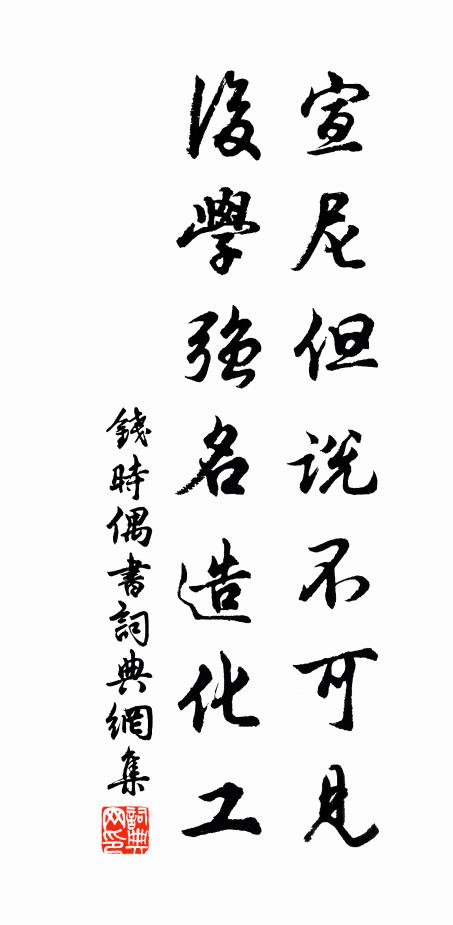 宣尼但説不可見
後學強名造化工
錢時偶書詞典網集
詞典网印